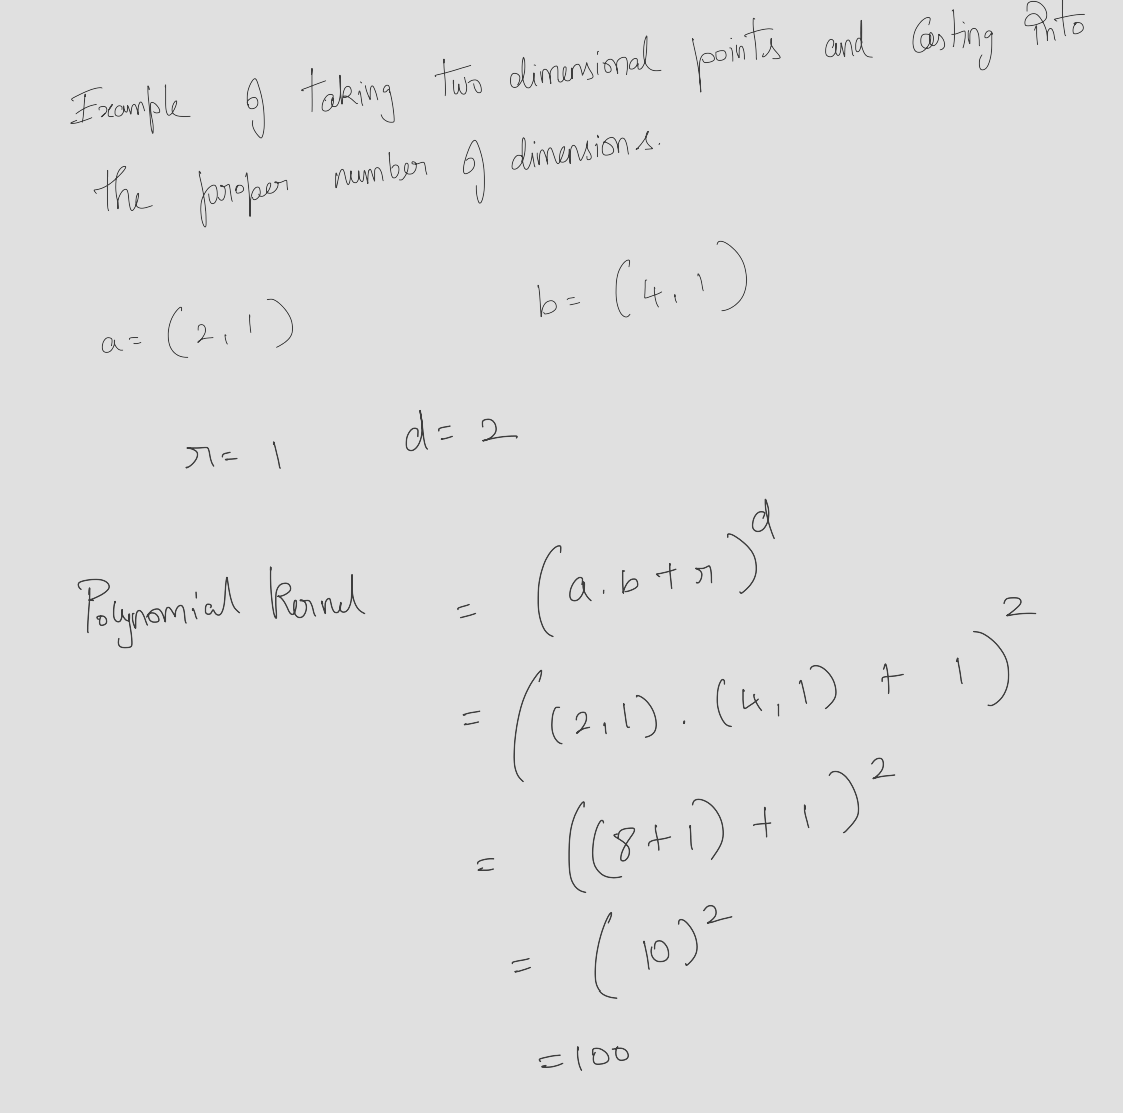 Example of taking two dimensional points and Casting into
the proper number of dimensions.
a = (2, 1) b = (4, 1)
r = 1 d = 2
Polynomial Kernel = (a . b + r)^d
= ((2, 1) . (4, 1) + 1)^2
= ((8 + 1) + 1)^2
= (10)^2
= 100